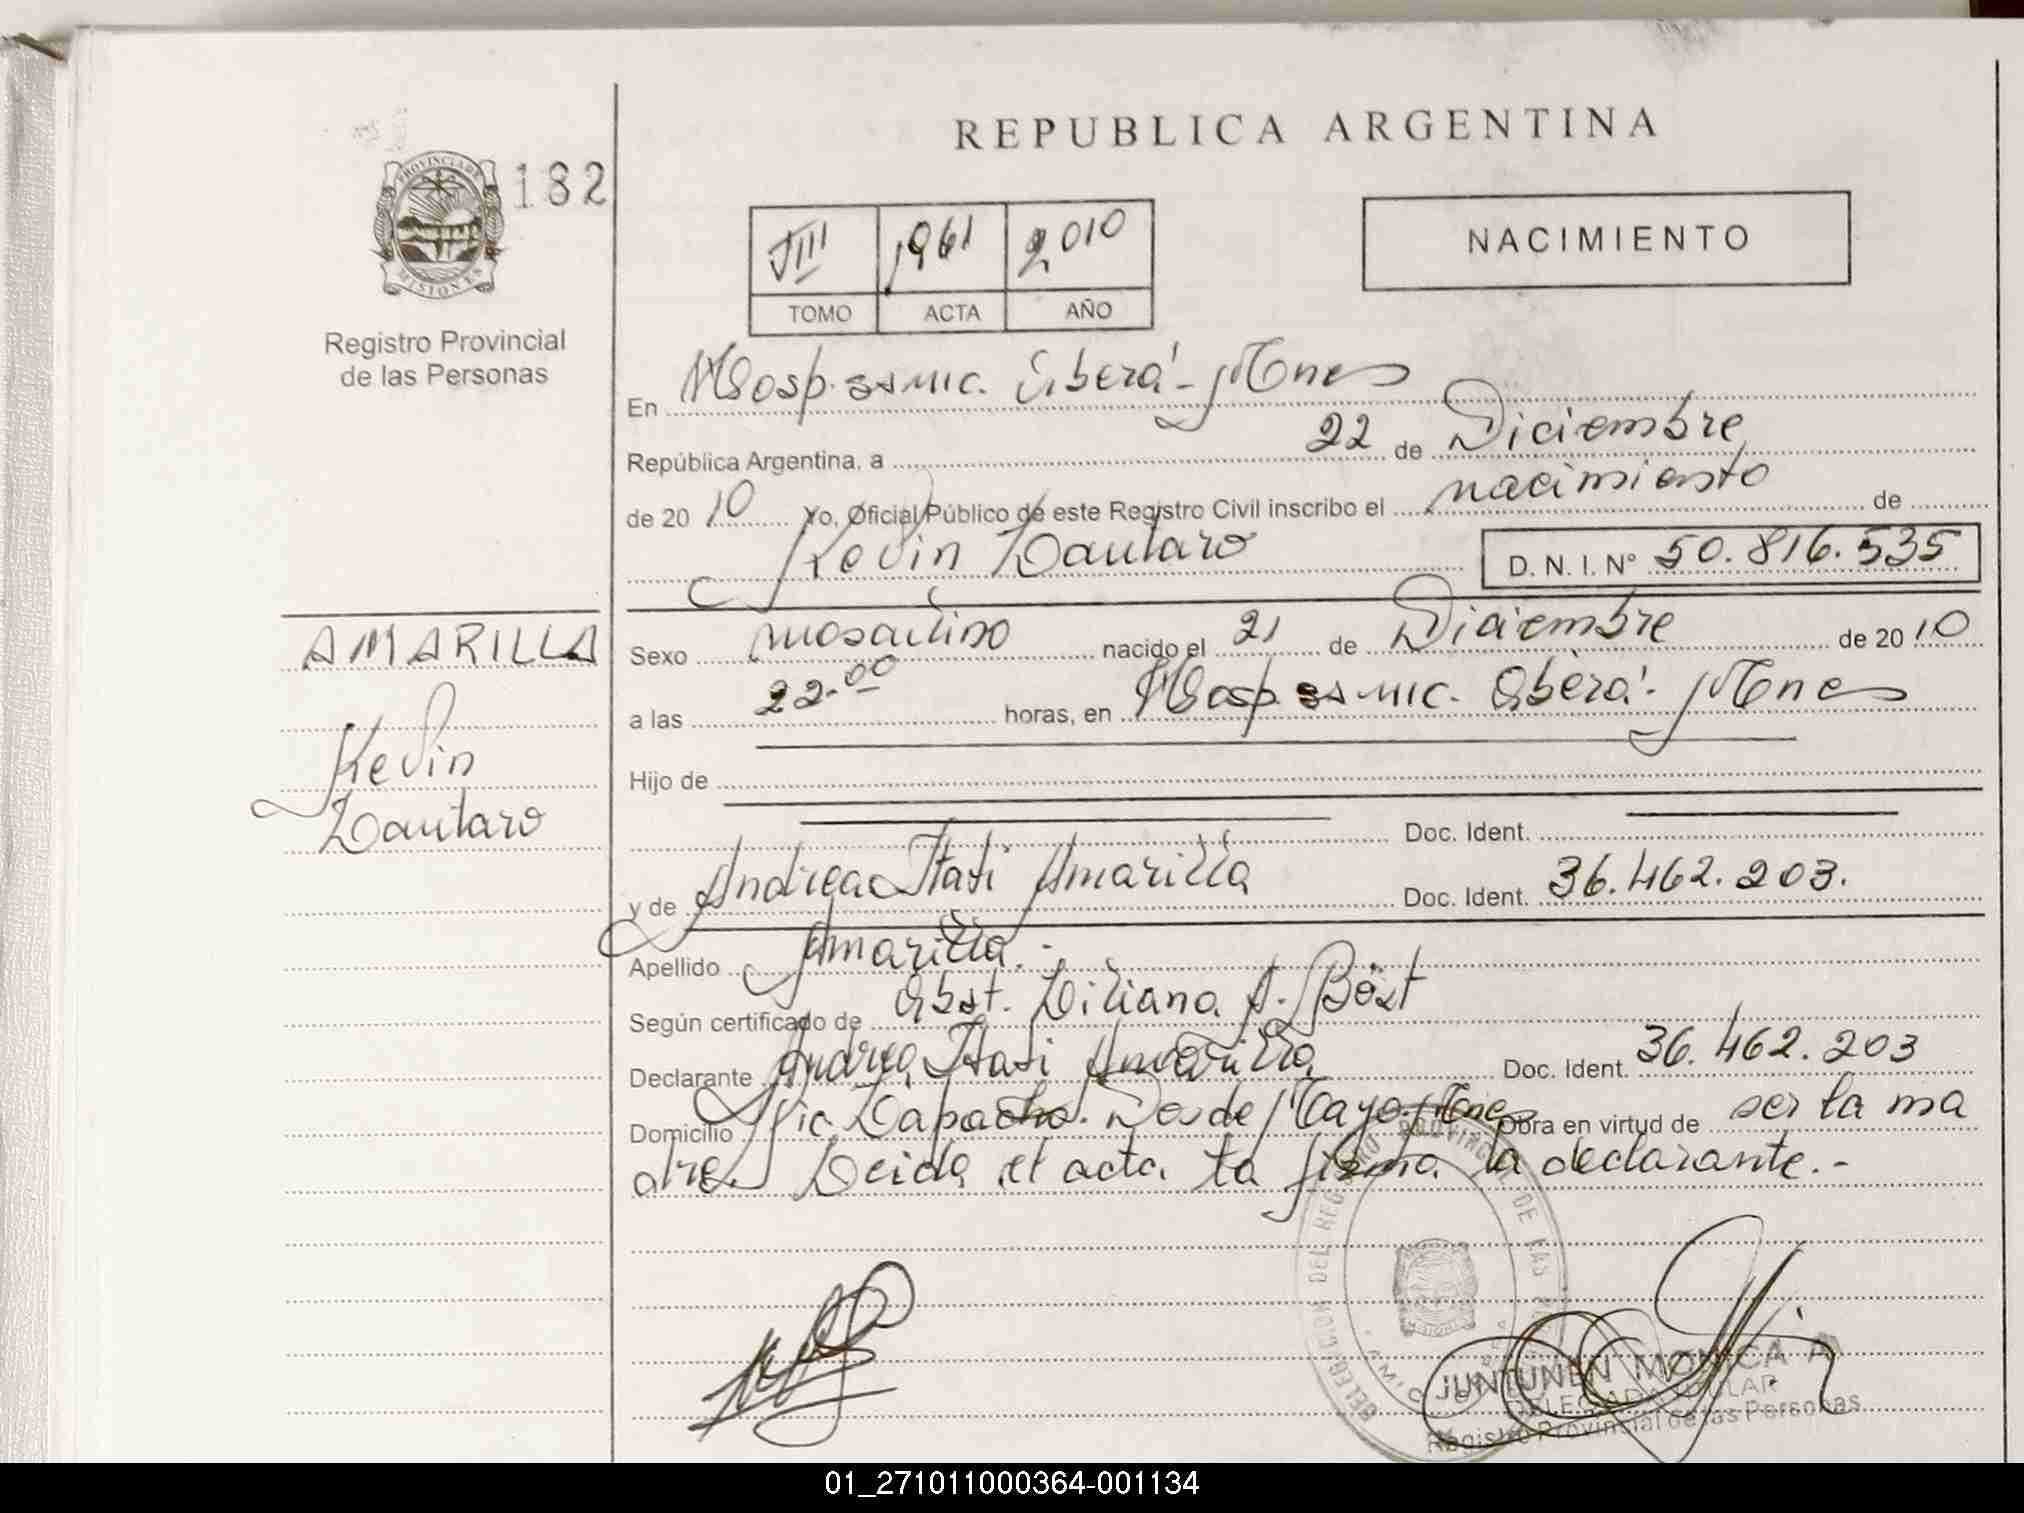 REPUBLICA ARGENTINA
PROVINCIA DE
MISIONES
182
Registro Provincial
de las Personas
VIII 1961 2010
TOMO ACTA AÑO
NACIMIENTO
En Hosp. SAMIC. Oberá - Mnes
República Argentina, a 22 de Diciembre
de 20 10 Yo, Oficial Público de este Registro Civil inscribo el nacimiento de
Kevin Lautaro D. N. I. Nº 50.816.535
AMARILLA
Kevin
Lautaro
Sexo masculino nacido el 21 de Diciembre de 20 10
a las 22.00 horas, en Hosp. SAMIC. Oberá - Mnes
Hijo de
Doc. Ident.
y de Andrea Itati Amarilla Doc. Ident. 36.462.203.
Apellido Amarilla.-
Según certificado de Obst. Liliana A.
Declarante Andrea Itati Amarilla Doc. Ident. 36.462.203
Domicilio Dos de Mayo. Mnes Obra en virtud de ser la ma
dre Leida el acta la firma la declarante.-
DELEGACION DEL REGISTRO PROVINCIAL DE LAS
JUNTUNEN MONICA A
DELEGADA TITULAR
Registro Provincial de las Personas
01_271011000364-001134